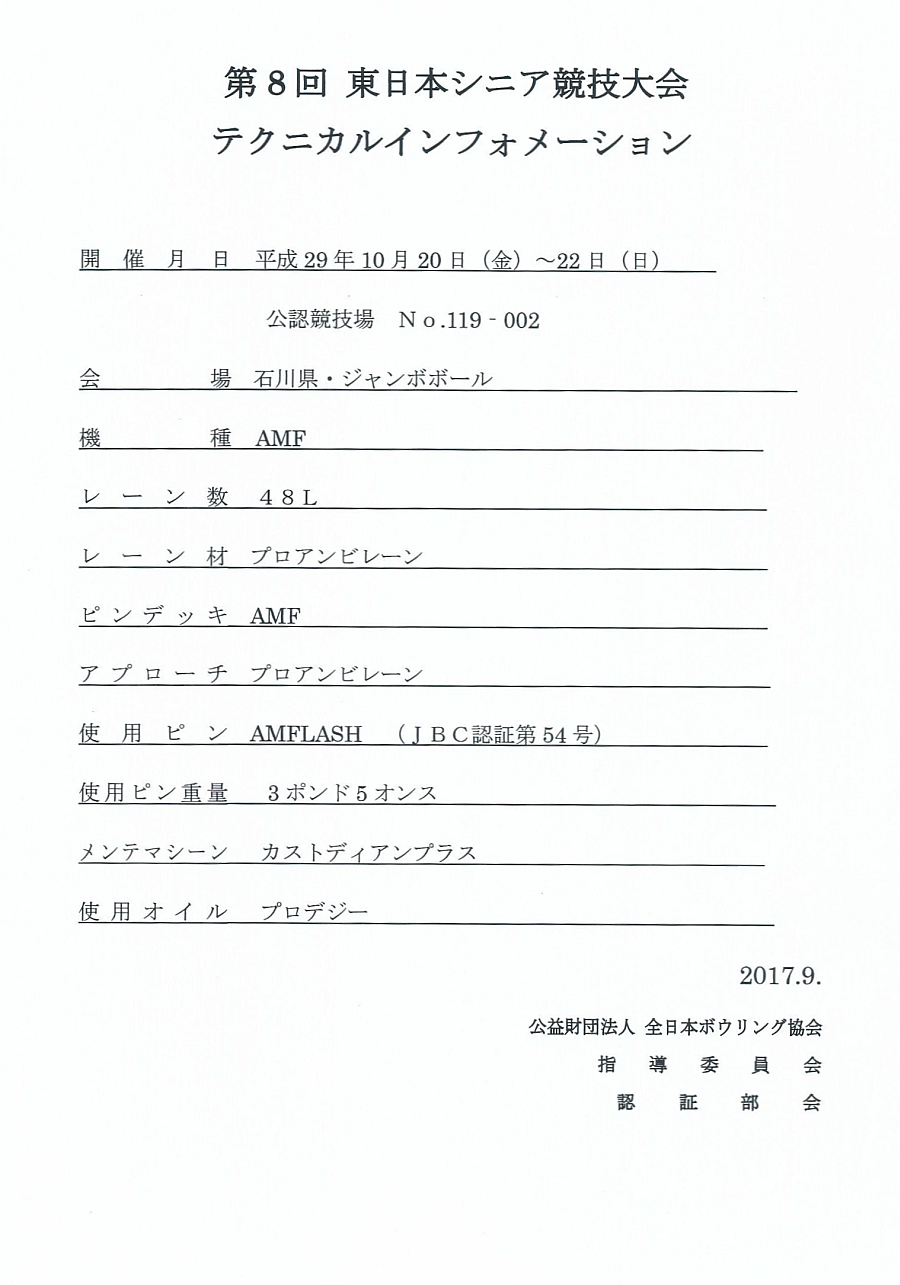 第８回 東日本シニア競技大会
テクニカルインフォメーション
開催月日 平成 29 年 10 月 20 日（金）～22 日（日）
公認競技場 Ｎｏ.119‐002
会場 石川県・ジャンボボール
機種 AMF
レーン数 ４８Ｌ
レーン材 プロアンビレーン
ピンデッキ AMF
アプローチ プロアンビレーン
使用ピン AMFLASH （ＪＢＣ認証第 54 号）
使用ピン重量 ３ポンド５オンス
メンテマシーン カストディアンプラス
使用オイル プロデジー
2017.9.
公益財団法人 全日本ボウリング協会
指導委員会
認証部会